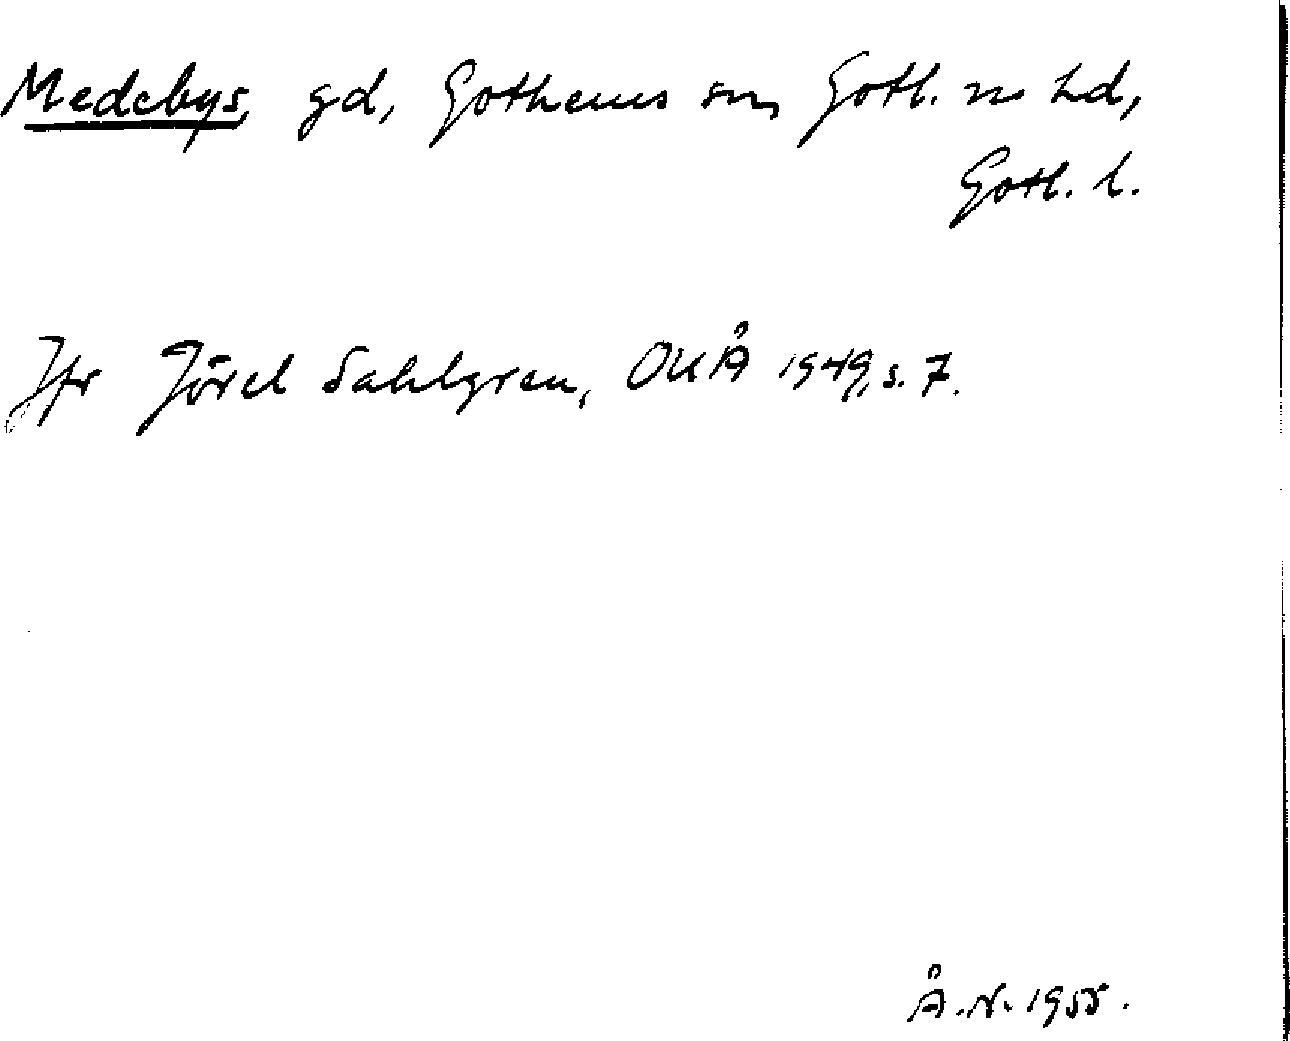 Medebys, gd, Gothems sn, Gotl. n hd,
Gotl. l.
Jfr Jöran Sahlgren, OUÅ 1949, s. 7.
Å. N. 1955.